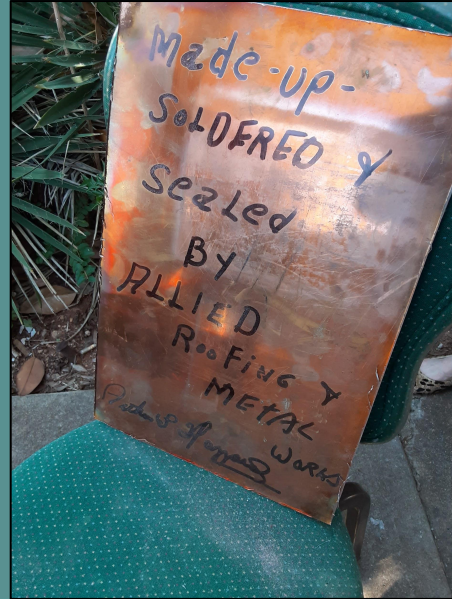 Made-up-
SOLDERED &
Sealed
BY
ALLIED
ROOFING &
METAL
WORKS